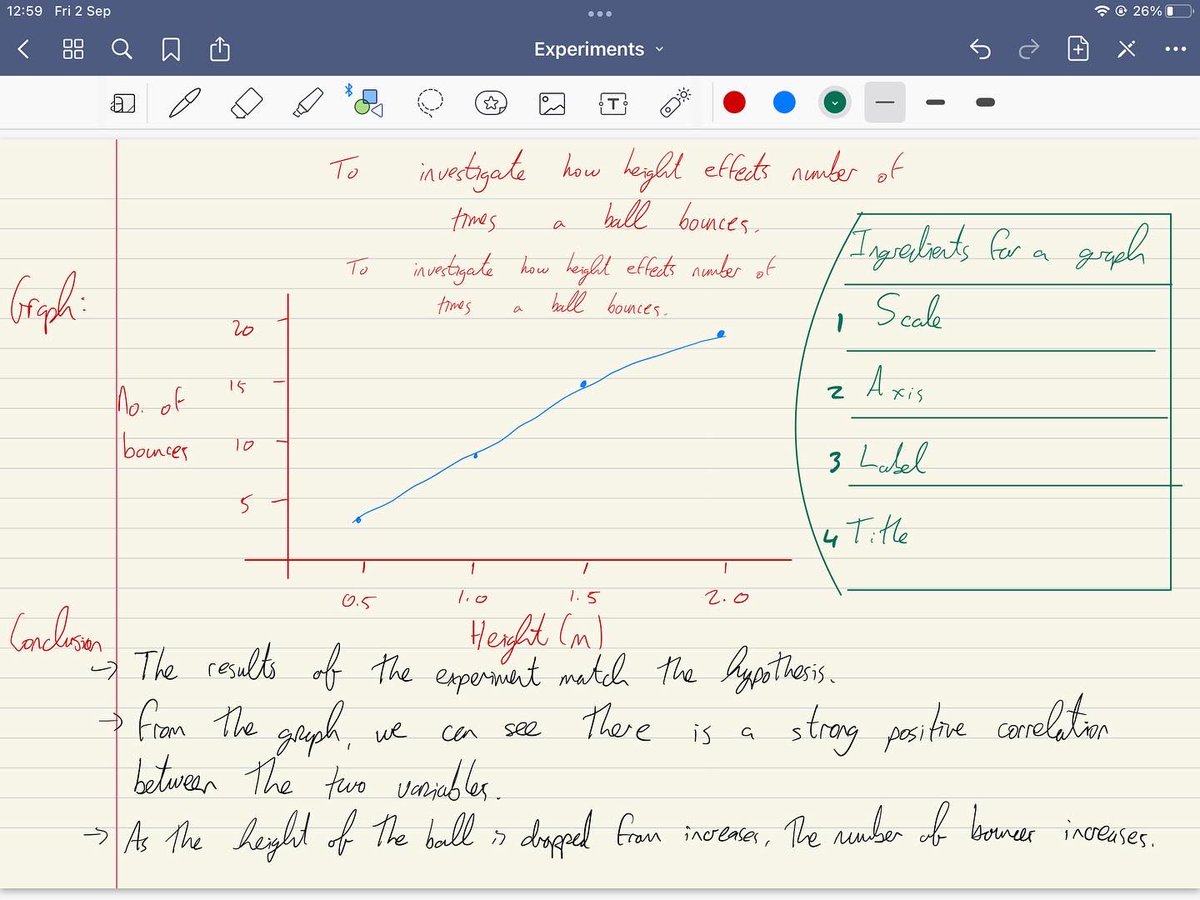 12:59 Fri 2 Sep
26%
Experiments
T
To investigate how height effects number of
times a ball bounces.
To investigate how height effects number of
times a ball bounces.
Graph:
No. of
bounces
20
15
10
5
0.5 1.0 1.5 2.0
Height (m)
Ingredients for a graph
1 Scale
2 Axis
3 Label
4 Title
Conclusion
→ The results of the experiment match the hypothesis.
→ From the graph, we can see there is a strong positive correlation
between the two variables.
→ As the height of the ball is dropped from increases, the number of bounces increases.